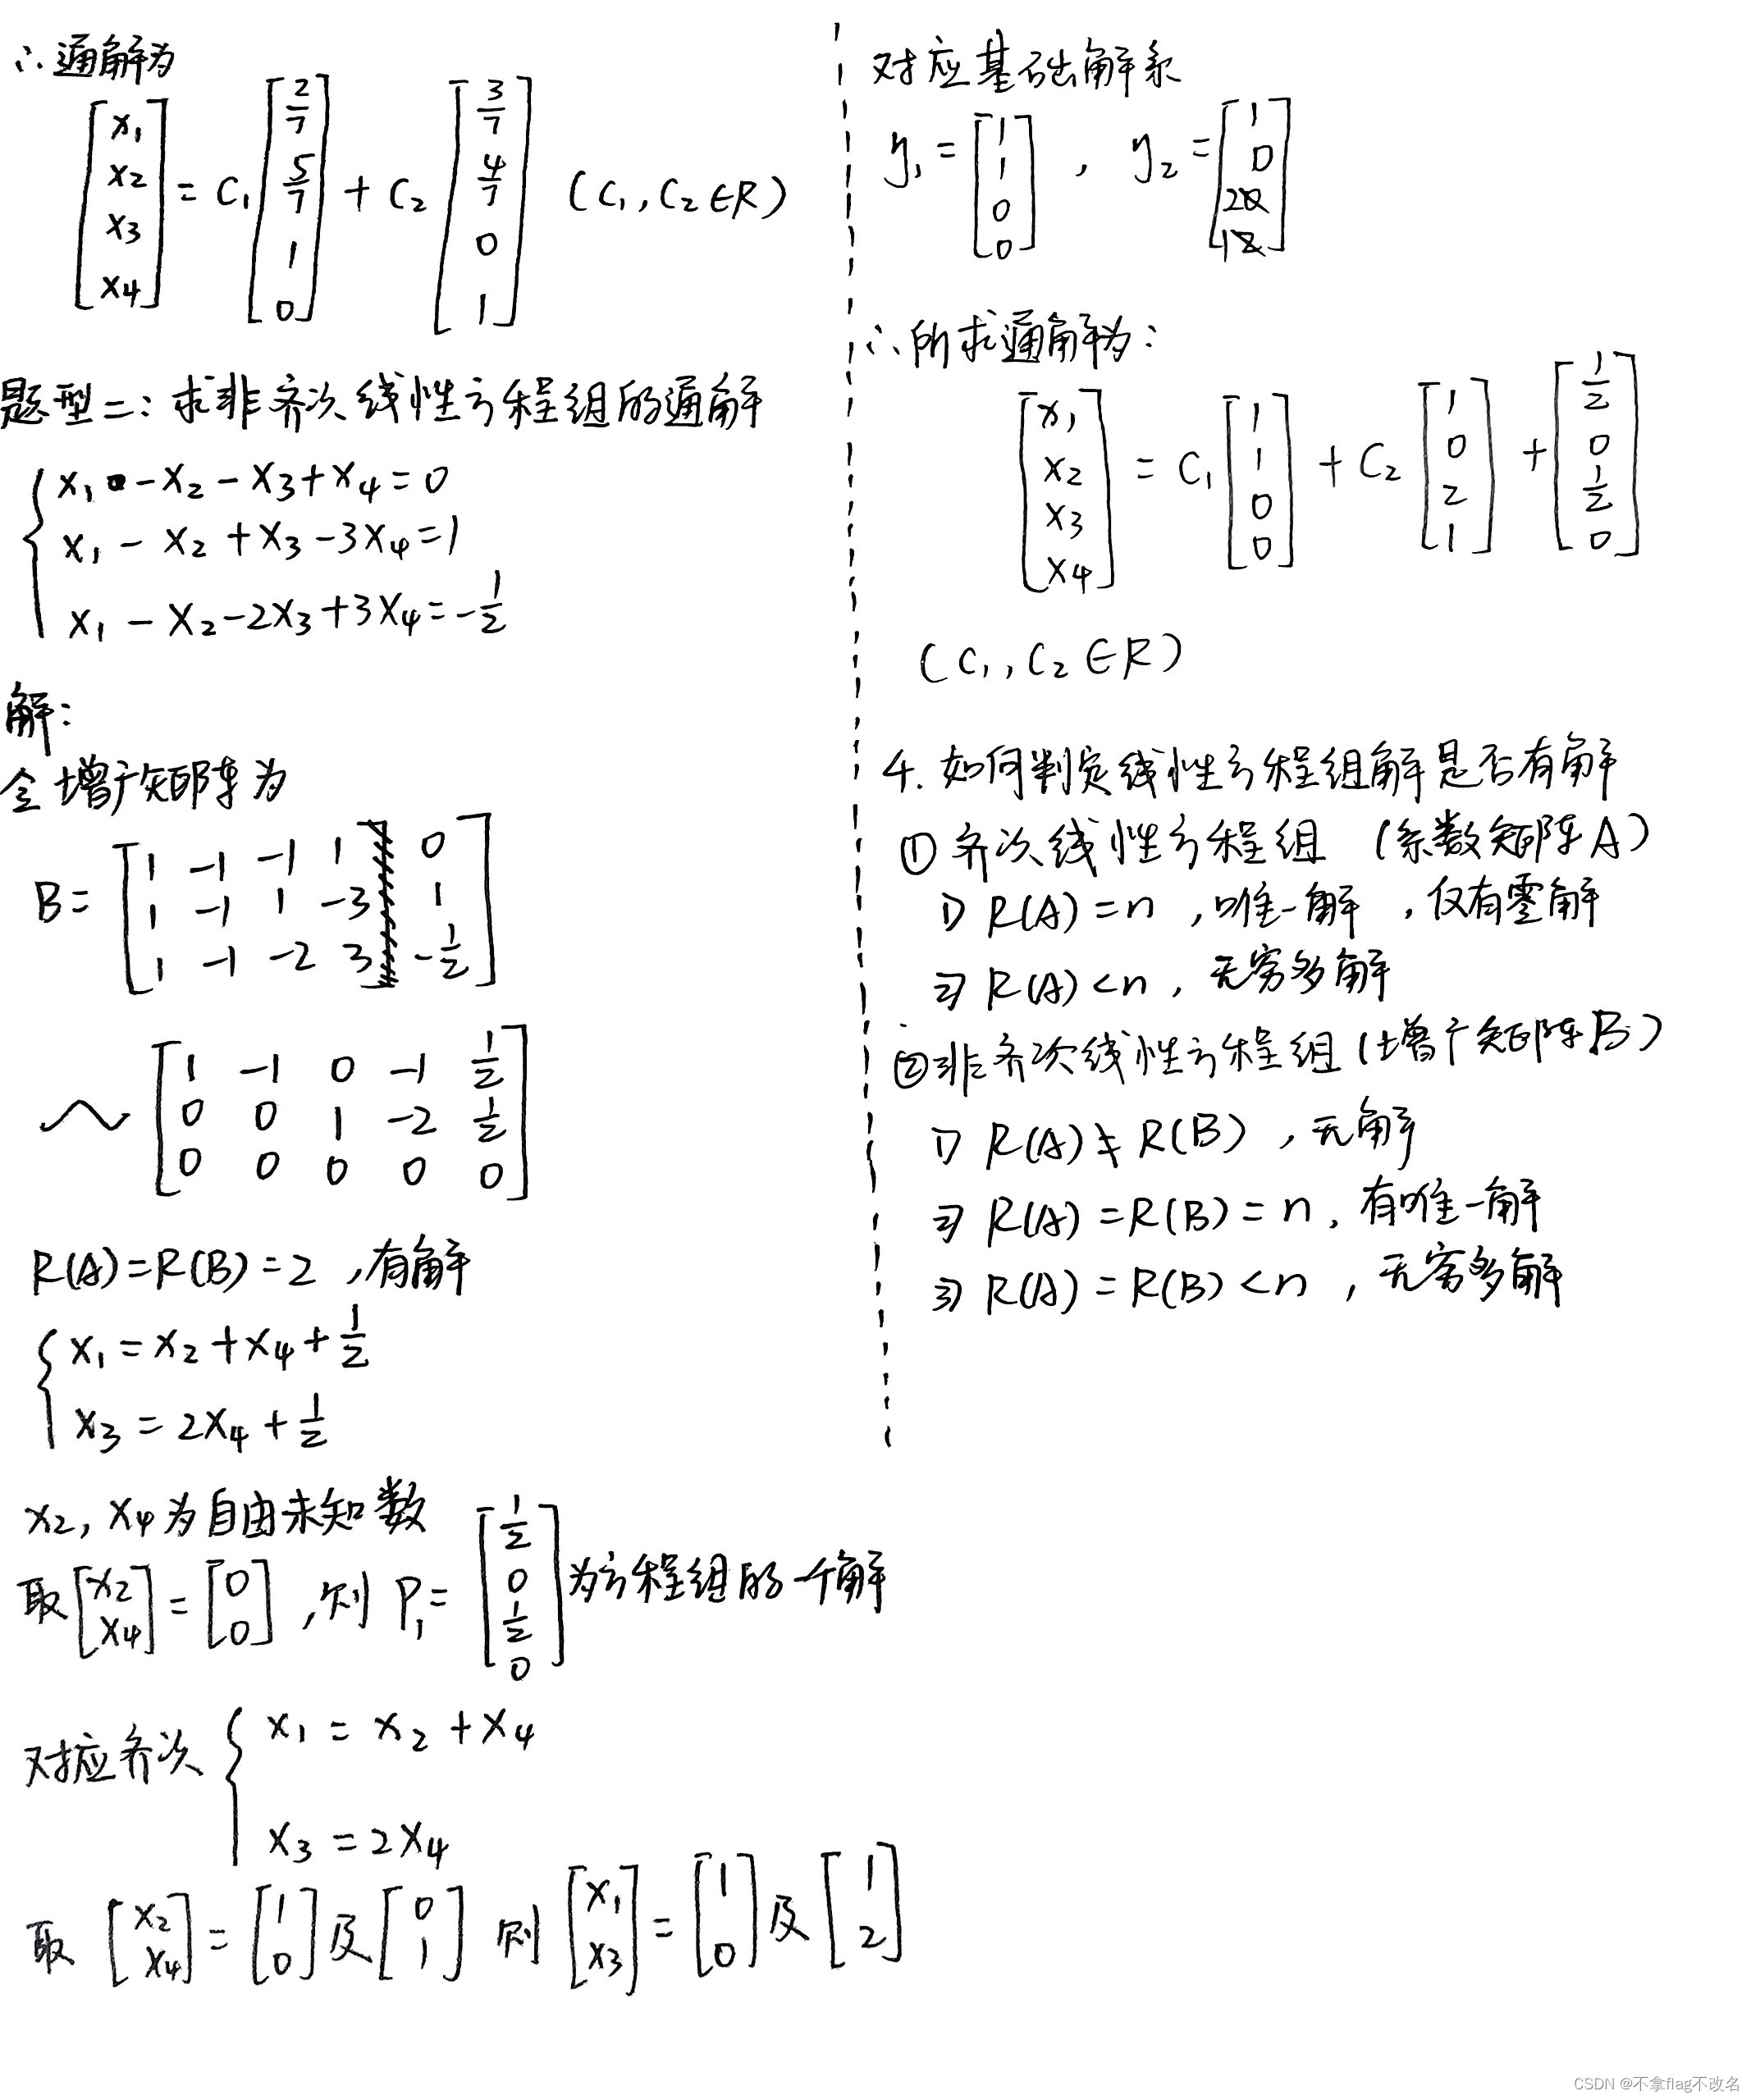 ∴通解为
[x₁ x₂ x₃ x₄] = C₁ [2/7 5/7 1 0] + C₂ [3/7 4/7 0 1] (C₁, C₂∈R)
题型二: 求非齐次线性方程组的通解
x₁ - x₂ - x₃ + x₄ = 0
x₁ - x₂ + x₃ - 3x₄ = 1
x₁ - x₂ - 2x₃ + 3x₄ = -1/2
解:
全增广矩阵为
B = [1 -1 -1 1 0
1 -1 1 -3 1
1 -1 -2 3 -1/2]
~ [1 -1 0 -1 1/2
0 0 1 -2 1/2
0 0 0 0 0]
R(A)=R(B)=2 ,有解
{ x₁ = x₂ + x₄ + 1/2
x₃ = 2x₄ + 1/2
x₂, x₄为自由未知数
取 [x₂ x₄] = [0 0] ,则 P₁ = [1/2 0 1/2 0] 为方程组的一个解
对应齐次 { x₁ = x₂ + x₄
x₃ = 2x₄
取 [x₂ x₄] = [1 0] 及 [0 1] 则 [x₁ x₃] = [1 0] 及 [1 2]
对应基础解系
y₁ = [1 1 0 0] , y₂ = [1 0 2 1]
∴所求通解为:
[x₁ x₂ x₃ x₄] = C₁ [1 1 0 0] + C₂ [1 0 2 1] + [1/2 0 1/2 0]
(C₁, C₂∈R)
4. 如何判定线性方程组解是否有解
① 齐次线性方程组 (系数矩阵A)
1) R(A)=n ,唯一解 ,仅有零解
2) R(A)<n, 无穷多解
②非齐次线性方程组(增广矩阵B)
1) R(A)≠R(B) ,无解
2) R(A)=R(B)=n, 有唯一解
3) R(A)=R(B)<n ,无穷多解
CSDN @不拿flag不改名